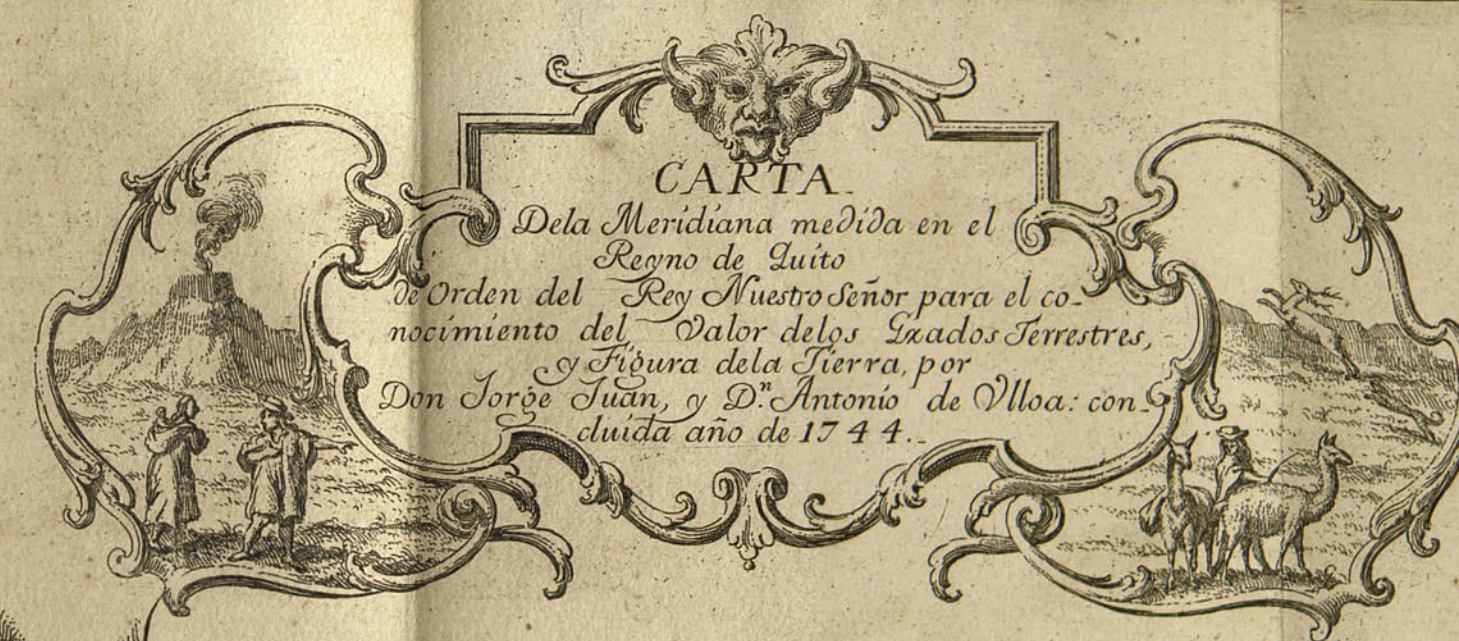 CARTA
Dela Meridiana medida en el
Reyno de Quito
de Orden del Rey Nuestro Señor para el co-
nocimiento del Valor delos Grados Terrestres,
y Figura dela Tierra, por
Don Jorge Juan, y D.ⁿ Antonio de Vlloa: con-
cluida año de 1744.